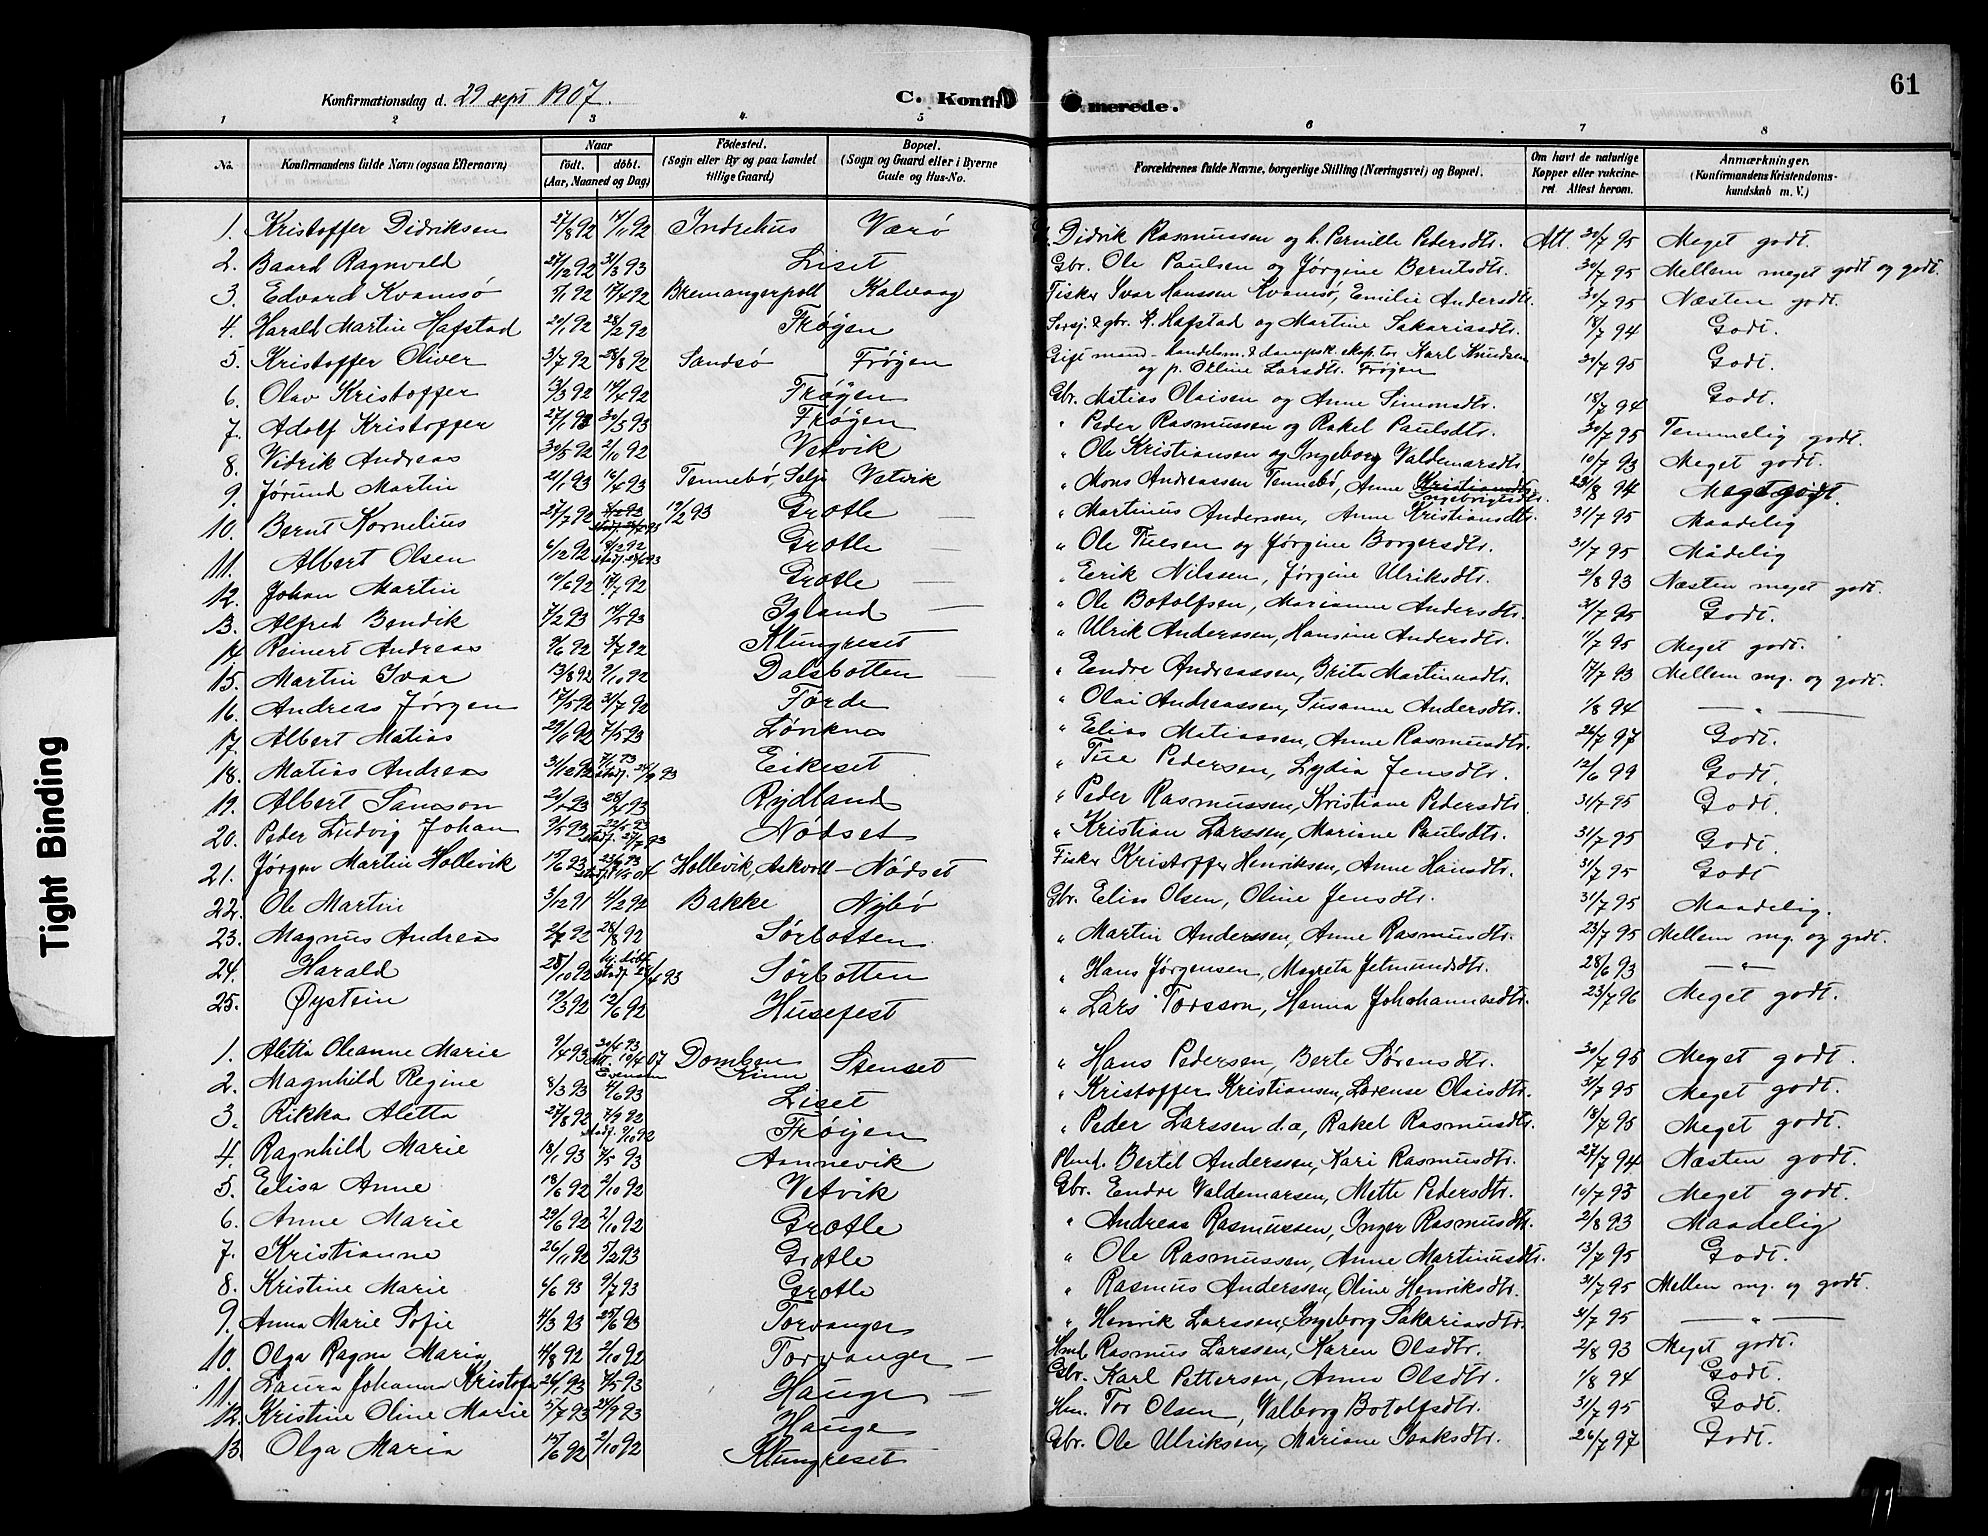 61
Konfirmationsdag d. 29 sept 1907.
C. Konfir merede.
1 2 3 4 5 6 7 8
No. Konfirmandens fulde Navn (ogsaa Efternavn) Naar födt. döbt. (Aar, Maaned og Dag) Födested. (Sogn eller By og paa Landet tillige Gaard) Bopæl. (Sogn og Gaard eller i Byerne Gade og Hus-No. Forældrenes fulde Navne, borgerlige Stilling (Næringsvei) og Bopæl. Om havt de naturlige Kopper eller vakcineret. Attest herom. Anmærkninger. (Konfirmandens Kristendomskundskab m. V.)
1. Kristoffer Didriksen 27/8 92 Indrehus Værö Didrik Rasmussen og h. Pernille Pedersdtr. Att. 30/7 95 Meget godt.
2. Baard Ragnvald 27/12 92 31/3 93 Liset Gbr. Ole Paulsen og Jørgine Berntsdtr. 30/7 95 Mellem meget godt og godt.
3. Edvard Kvamsö 17/4 92 Bremangerpoll Kalvaag Fisker Ivar Hanssen Kvamsö, Emilie Andersdtr. 31/7 95 Næsten godt.
4. Harald Martin Hafstad 20/1 92 28/2 92 Frøyen Hafstad og Martine Sakariasdtr. 18/7 94 Godt.
5. Kristoffer Oliver 3/7 92 28/8 92 Sandsö Frøyen Gift mand - handelsm. & dampsk. eksp.tør Karl Knudsen og p. Oline Larsdtr. Frøyen 30/7 95 Godt.
6. Olav Kristoffer 13/3 92 17/4 92 Frøyen Gbr. Matias Olaisen og Anne Simonsdtr. 18/7 94 Godt.
7. Adolf Kristoffer 30/5 93 Frøyen " Peder Rasmussen og Rakel Paulsdtr. 30/7 95 Temmelig godt.
8. Vidrik Andreas 30/5 92 2/10 92 Vetvik " Ole Kristiansen og Ingeborg Valdemarsdtr. 10/7 93 Meget godt.
9. Jørund Martin 21/1 93 16/4 93 Tennebø, Selje Vetvik " Mons Andreassen Tennebø, Anne Kristiansdtr. Ingebrigtsdtr. 23/8 94 Meget godt.
10. Bernt Kornelius 27/7 92 12/2 93 Grotle " Martinus Anderssen, Anne Kristiansdtr. 31/7 95 Maadelig
11. Albert Olsen 6/12 92 Grotle " Ole Tuesen og Jørgine Borgersdtr. 31/7 95 Mådelig
12. Johan Martin 10/6 92 17/7 92 Grotle — " Eerik Nilssen, Jørgine Ulriksdtr. 2/8 93 Næsten meget godt.
13. Alfred Bendik 7/2 93 14/5 93 Igland — " Ole Botolfsen, Marianne Andersdtr. 31/7 95 Godt.
14 Reinert Andreas 9/6 92 3/7 92 Klungreset " Ulrik Anderssen, Hansine Andersdtr. 11/7 95 Meget godt.
15. Martin Ivar 13/8 92 9/10 92 Dalsbotten — " Endre Andreassen, Brita Martinusdtr. 17/7 93 Mellem mg. og godt.
16. Andreas Jørgen 17/5 92 31/7 92 Førde " Olai Andreassen, Susanne Andersdtr. 1/8 94 — " —
17. Albert Matias 7/5 93 Løviknes " Elias Matiassen, Anne Rasmusdtr. 26/7 97 Godt.
18. Matias Andreas 31/12 92 Eikeset " Tue Pedersen, Lydia Jensdtr. 12/6 99 Godt.
19. Albert Samson Rydland " Peder Rasmussen, Kristiane Pedersdtr. 31/7 95 Godt.
20. Peder Ludvig Johan 9/5 93 Nødset " Kristian Larssen, Marime Paulsdtr. 31/7 95 Godt.
21. Jørgen Martin Hollevik 15/6 93 Hollevik, Askvoll — Nødset Fisker Kristoffer Henriksen, Anne Hansdtr. 31/7 95 Godt
22. Ole Martin 3/12 91 4/2 92 Bakke Nybø Gbr. Elias Olsen, Oline Jensdtr. 31/7 95 Maadelig.
23. Magnus Andreas 2/7 92 28/8 92 Sørbotten " Martin Anderssen, Anne Rasmusdtr. 23/7 95 Mellem mg. og godt.
24. Harald 28/10 92 hj. döbt Sørbotten " Hans Jørgensen, Magreta Jetmundsdtr. 28/6 93 — " —
25. Øystein 19/3 92 12/6 92 Husefest " Lars Torsson, Hanna Johohannesdtr. 23/7 96 Meget godt.
1. Aletta Oleanne Marie 9/4 93 Domben Kinn Stenset " Hans Pedersen, Berte Sørensdtr. 30/7 95 Meget godt.
2. Magnhild Regine 8/3 93 4/6 93 Liset " Kristoffer Kristiansen, Lorense Olaisdtr. 31/7 95 Meget godt.
3. Rikka Aletta 27/8 92 Frøyen " Peder Larssen d.a, Rakel Rasmusdtr. 18/7 95 Meget godt.
4. Ragnhild Marie 18/1 93 7/5 93 Aannevik Bertel Anderssen, Kari Rasmusdtr. 27/7 94 Næsten godt.
5. Elisa Anne 18/6 92 2/10 92 Vetvik Gbr. Endre Valdemarsen, Mette Pedersdtr. 10/7 93 Meget godt.
6. Anne Marie 29/6 92 2/10 92 Grotle " Andreas Rasmussen, Inger Rasmusdtr. 2/8 93 Maadelig
7. Kristianne 26/11 92 5/2 93 Grotle " Ole Rasmussen, Anne Martinusdtr. 13/7 95 Godt.
8. Kristine Marie 4/6 93 9/7 93 Grotle " Rasmus Anderssen, Oline Henriksdtr. 31/7 95 Mellem mg. og godt.
9. Anna Marie Sofie 4/3 93 25/6 93 Torvanger " Henrik Larssen, Ingeborg Sakariasdtr. 31/7 95 — " —
10. Olga Ragna Maria 4/8 92 2/10 92 Torvanger — Rasmus Larssen, Karen Olsdtr. 2/8 93 Meget godt.
11. Laura Johanna Kristofa 26/1 93 7/5 93 Hauge — Gbr. Karl Pettersen, Anna Olsdtr. 1/8 94 Godt.
12. Kristine Oline Marie 5/7 93 24/9 93 Hauge Hm. Tor Olsen, Valborg Botolfsdtr. 31/7 95 Godt.
13. Olga Maria 15/6 92 2/10 92 Klungreset Gbr. Ole Ulriksen, Mariane Isaksdtr. 26/7 97 Godt.
Tight Binding